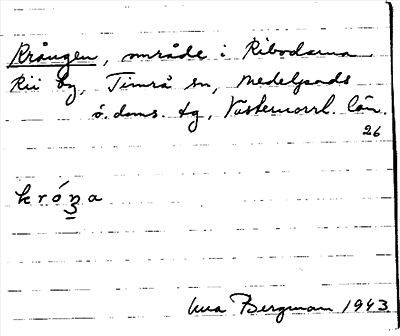 Krången, område i Ribodarna
Rii by, Timrå sn, Medelpads
ö. doms. tg, Västernorrl. län.
26
króŋa
Bergman 1943